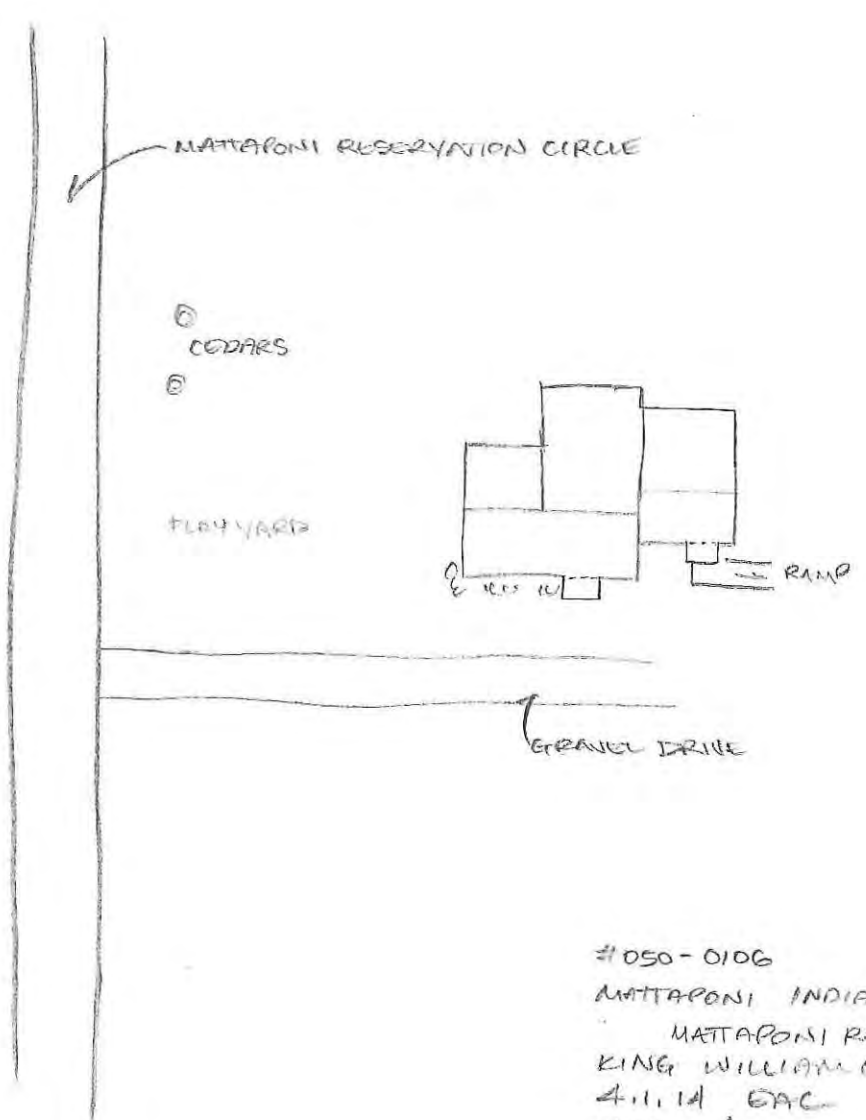 MATTAPONI RESERVATION CIRCLE
CEDARS
PLAYYARD
RAMP
GRAVEL DRIVE
#050-0106
MATTAPONI INDIA
MATTAPONI R
KING WILLIAM
4.1.14 EAC